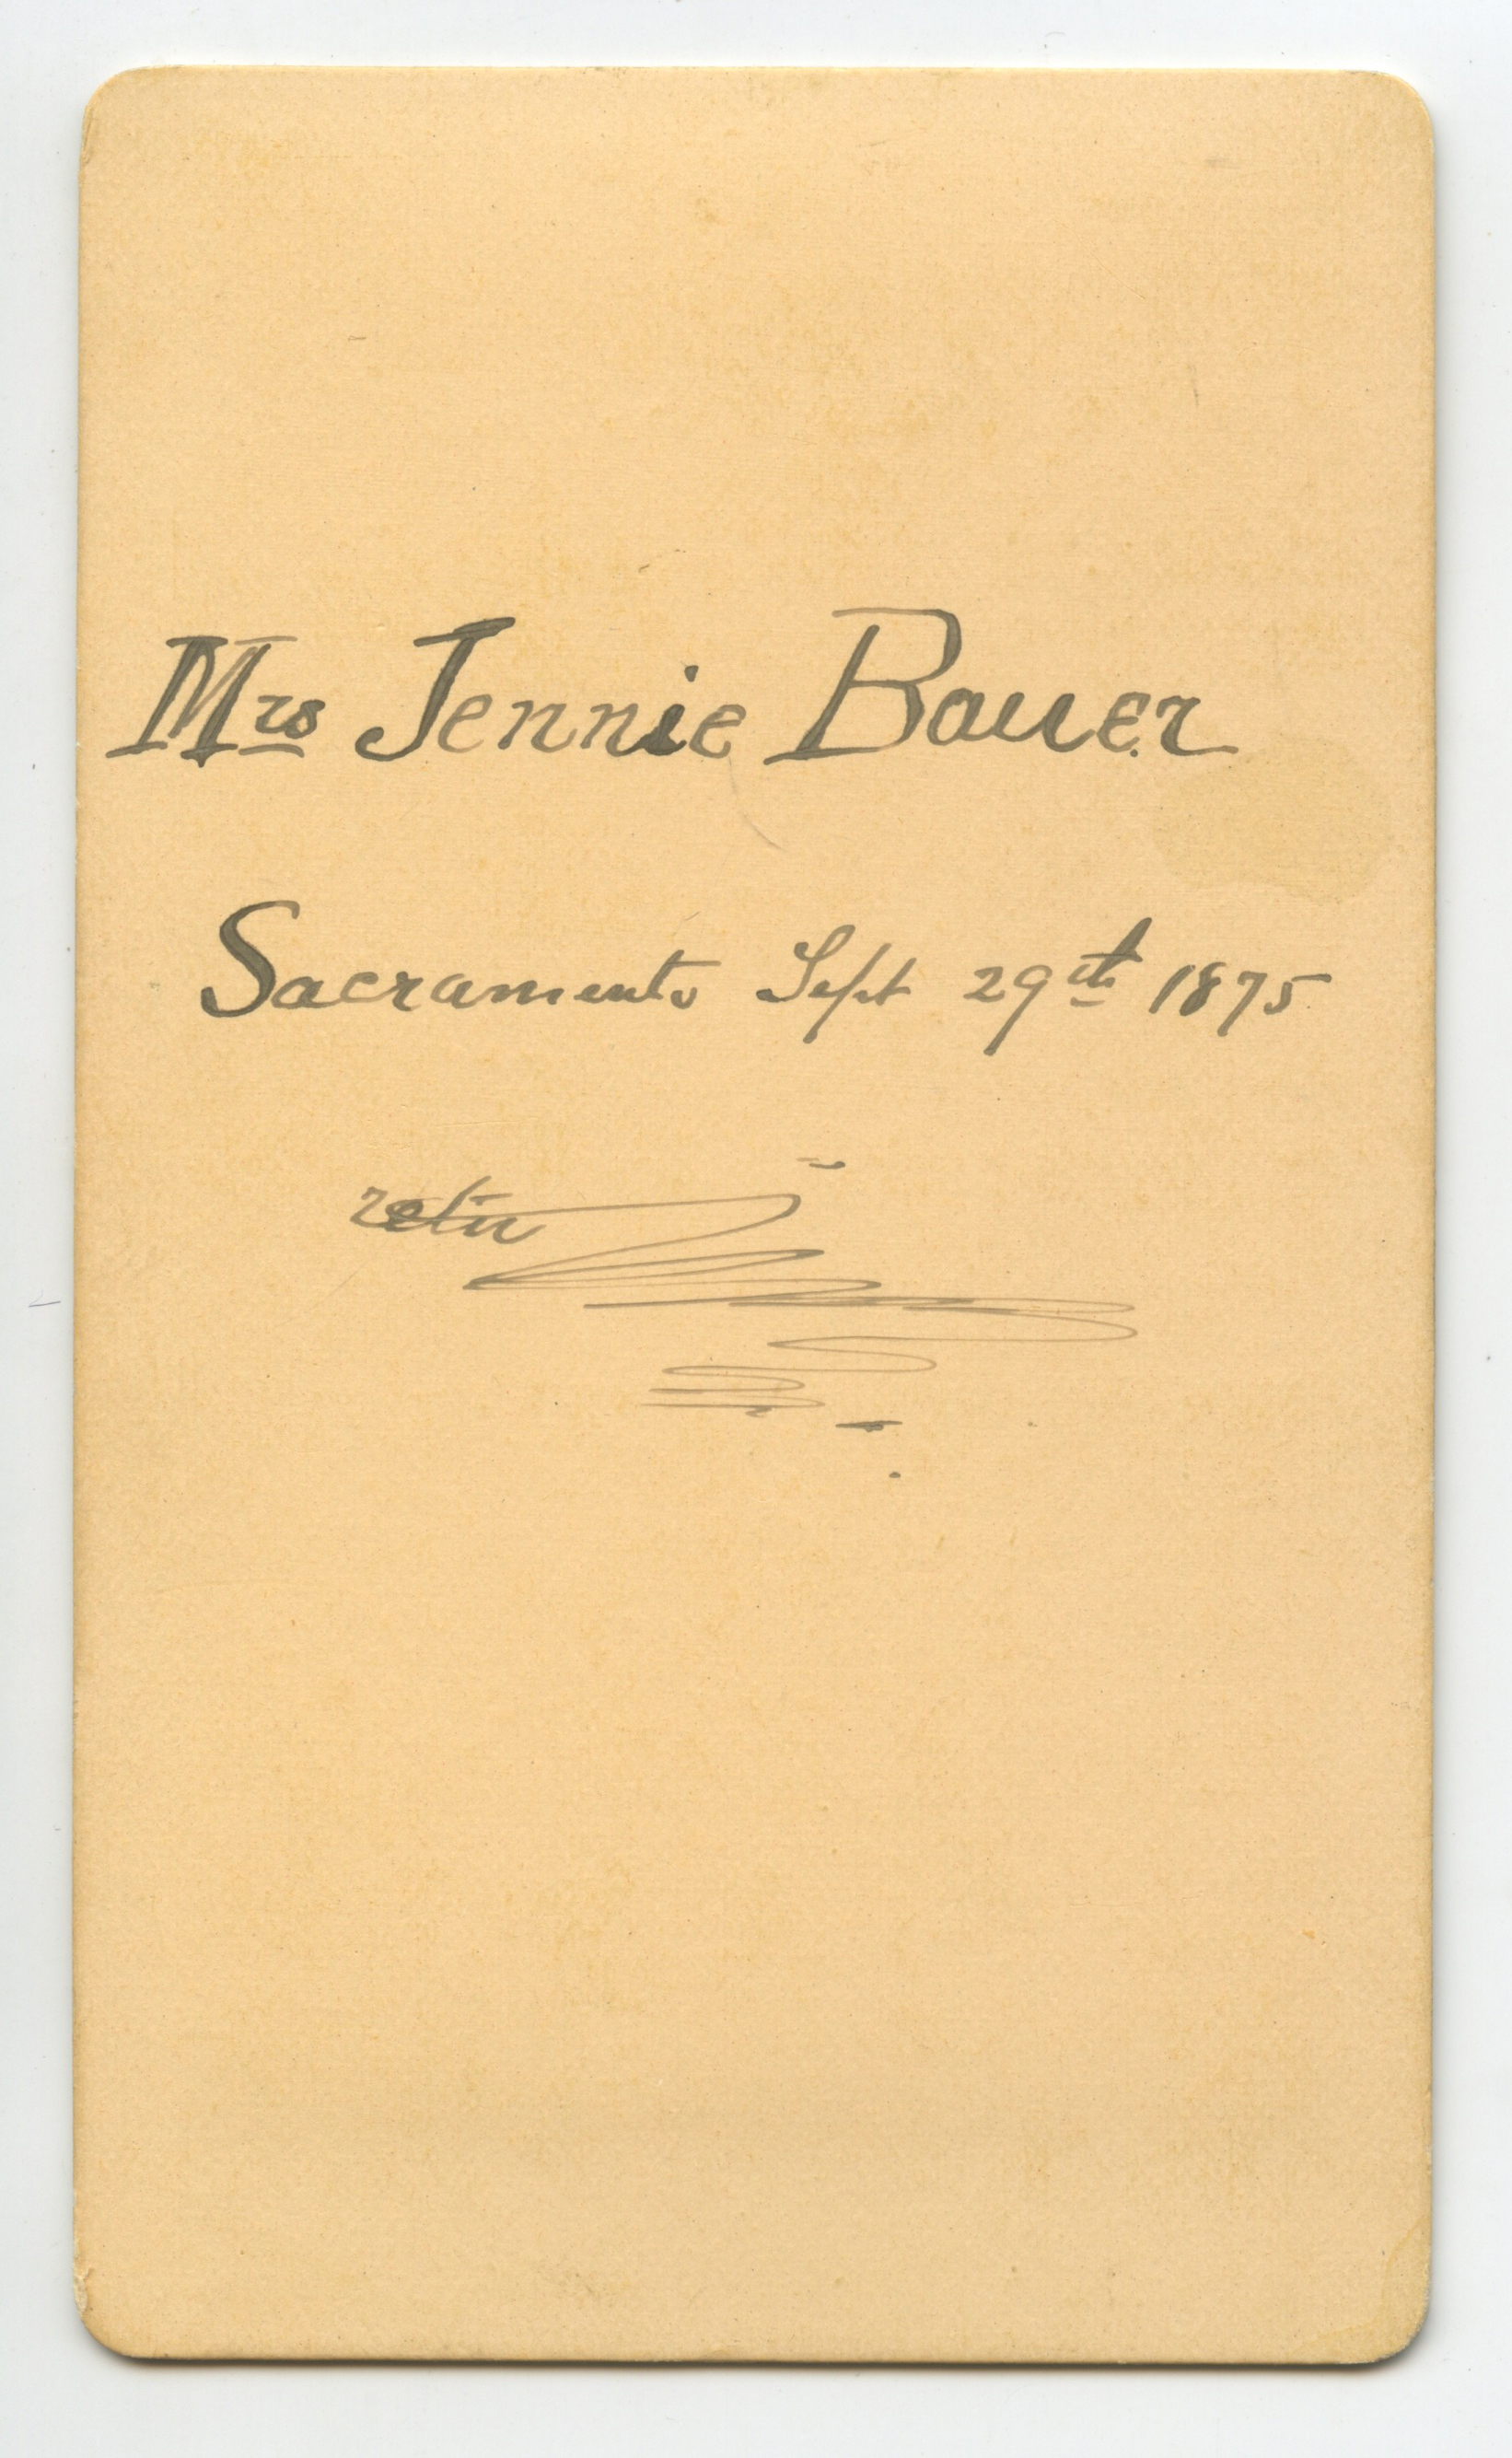 Mrs Jennie Bauer
Sacramento Sept 29th 1875